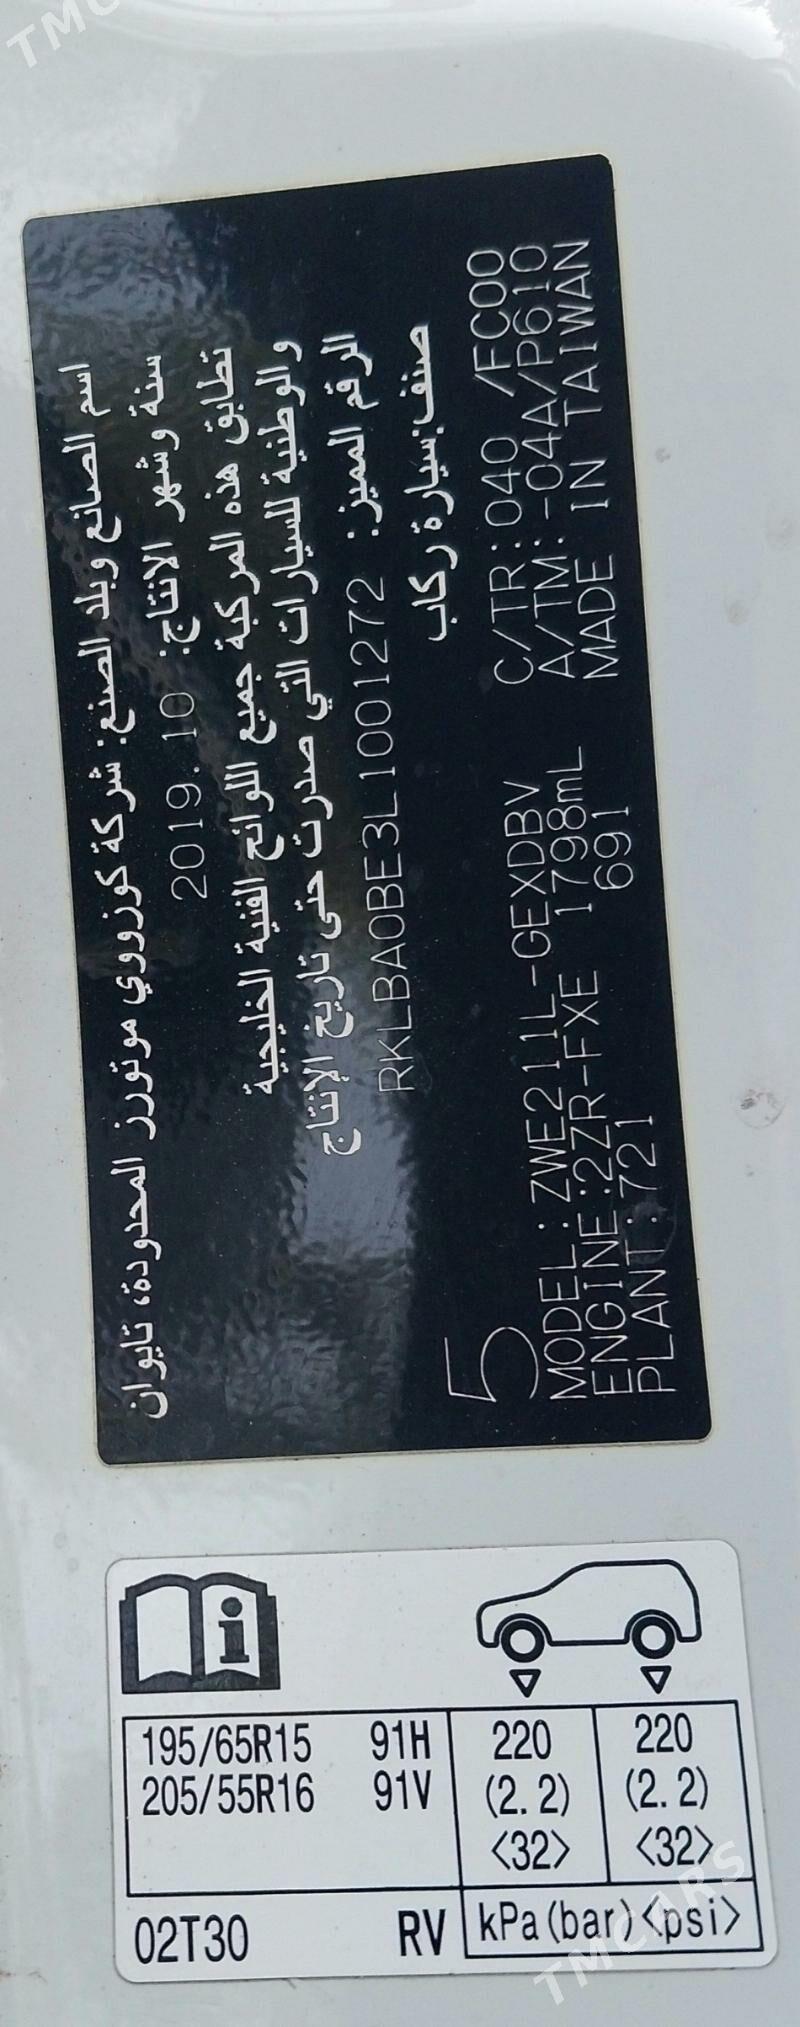 TMC
اسم الصانع وبلد الصنع: شركة كوزووي موتورز المحدودة، تايوان
سنة وشهر الانتاج: 2019.10
تطابق هذه المركبة جميع اللوائح الفنية الخليجية
والوطنية للسيارات التي صدرت حتى تاريخ الإنتاج
الرقم المميز: RKLBA0BE3L1001272
صنف: سيارة ركاب
5
MODEL:ZWE211L-GEXDBV C/TR:040 /FC00
ENGINE:2ZR-FXE 1798mL A/TM:-04A/P610
PLANT:721 691 MADE IN TAIWAN
195/65R15 91H 220 220
205/55R16 91V (2.2) (2.2)
<32> <32>
02T30 RV kPa(bar)<psi>
TMCARS